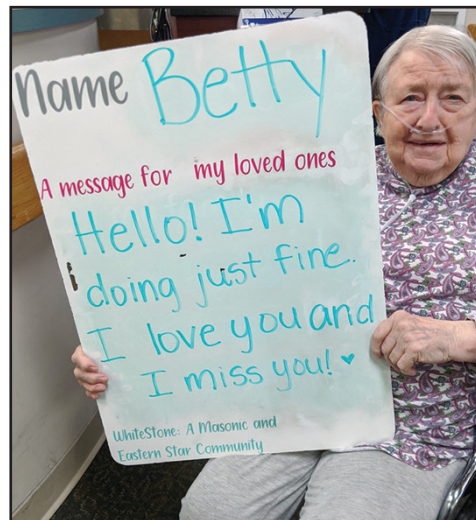 Name Betty
A message for my loved ones
Hello! I'm
doing just fine.
I love you and
I miss you! ♥
WhiteStone: A Masonic and
Eastern Star Community